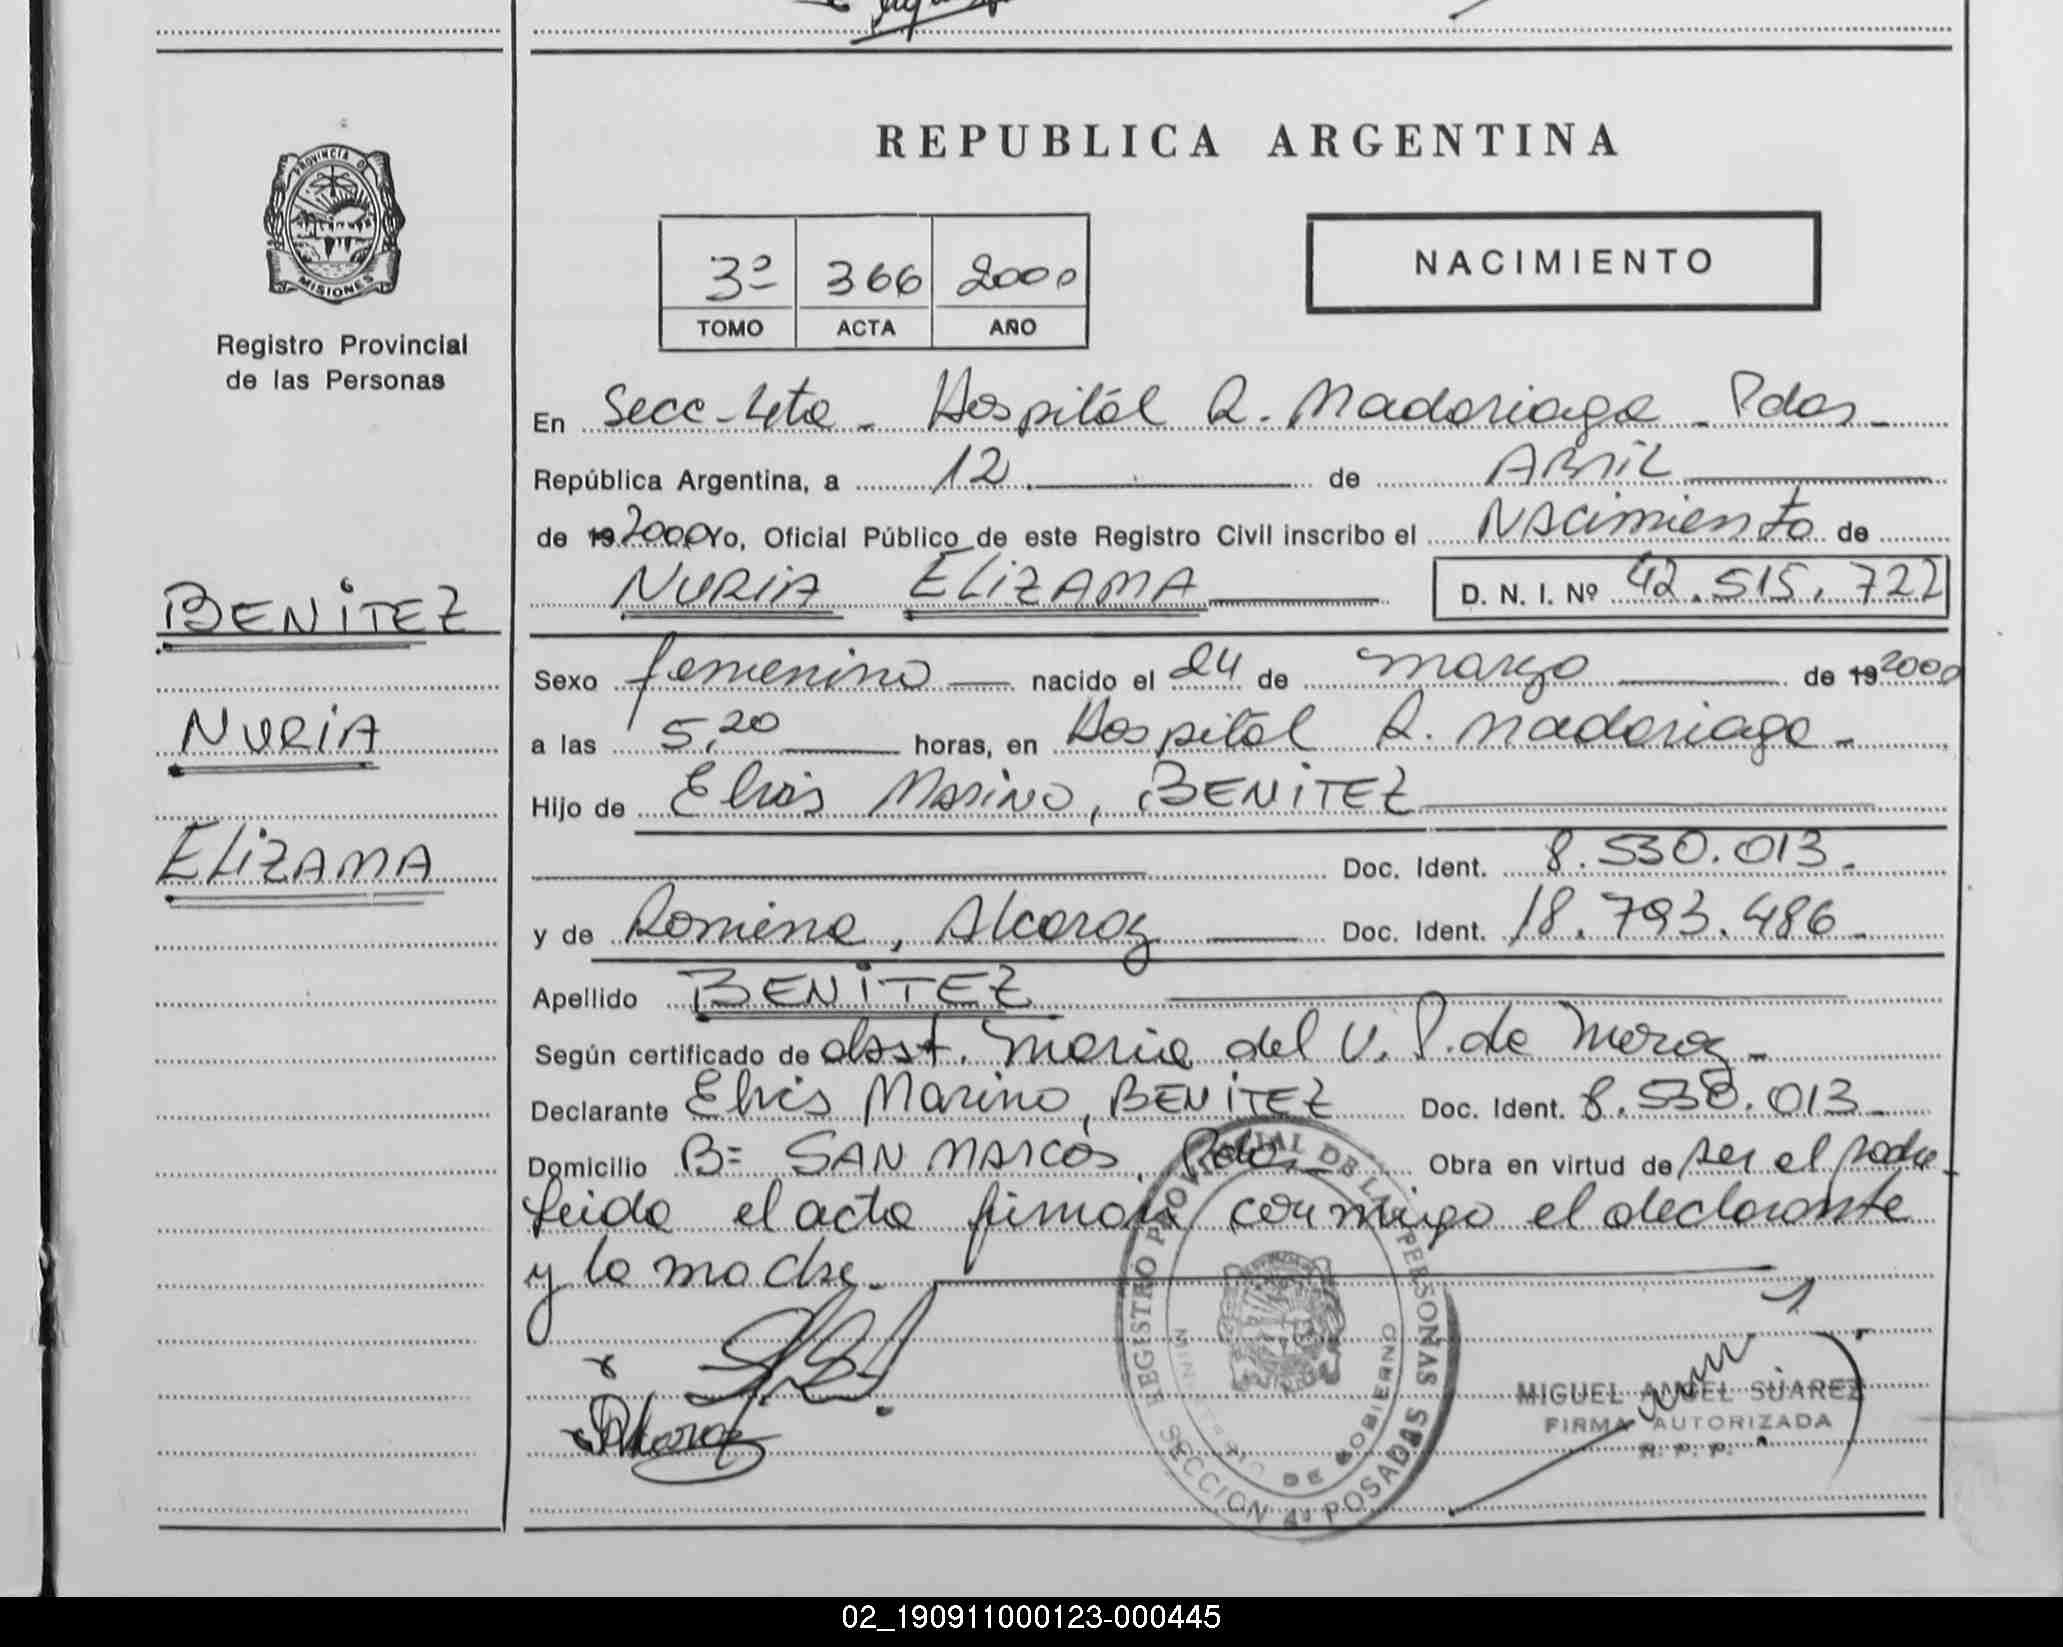 PROVINCIA DE
MISIONES
Registro Provincial
de las Personas
BENITEZ
NURIA
ELIZAMA
REPUBLICA ARGENTINA
3º 366 2000
TOMO ACTA AÑO
NACIMIENTO
En Secc-4ta - Hospitál R. Madariaga - Pdas -
República Argentina, a 12 de Abril
de 19 2000 Yo, Oficial Público de este Registro Civil inscribo el Nacimiento de
NURIA ELIZAMA D. N. I. Nº 42.515.722
Sexo femenino nacido el 24 de marzo de 19 2000
a las 5,20 horas, en Hospitál R. Madariaga -
Hijo de Elvis Marino, BENITEZ
Doc. Ident. 8.530.013.
y de Romina, Alcaraz Doc. Ident. 18.793.486
Apellido BENITEZ
Según certificado de obst. Maria del V. P. de Meraz -
Declarante Elvis Marino, BENITEZ Doc. Ident. 8.530.013
Domicilio Bº SAN MARCOS, Pdas - Obra en virtud de ser el padre
Leida el acta firman conmigo el declarante
y la madre.
REGISTRO PROVINCIAL DE LAS PERSONAS
MINISTERIO DE GOBIERNO
SECCION 4ª POSADAS
Alcaraz
MIGUEL ANGEL SUAREZ
FIRMA AUTORIZADA
R. P. P.
02_190911000123-000445